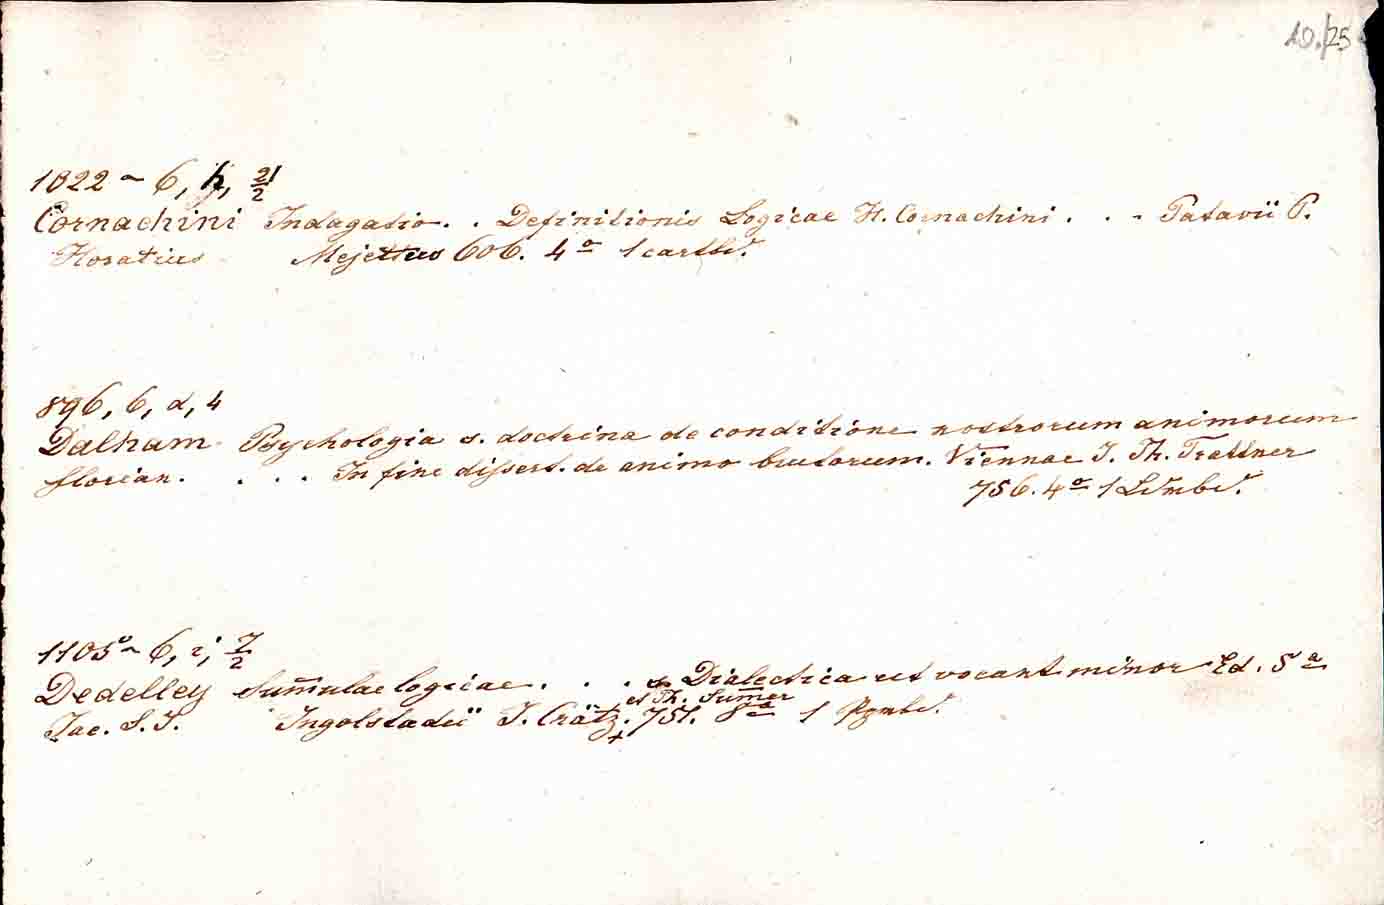 10./25
1022 ~ 6, h, 21/2
Cornachini Indagatio . . Definitionis Logicae H. Cornachini . . . Patavii P.
Horatius Mejettus 606. 4º 1 cartbd.
896, 6, α, 4
Dalham Psychologia s. doctrina de conditione nostrorum animorum
florian. . . . In fine dissert. de animo brutorum. Viennae J. Th. Trattner
756. 4º 1 Ldrnbd.
1105 ~ 6, i, 7/2
Dedelley Sum̄ulae logicae . . . s. Dialectica ut vocant minor Ed. 5ª
et Th. Sum̄er
Jac. S. J. Ingolstadii J. Crätz. 751. 8º 1 Pgmbd.